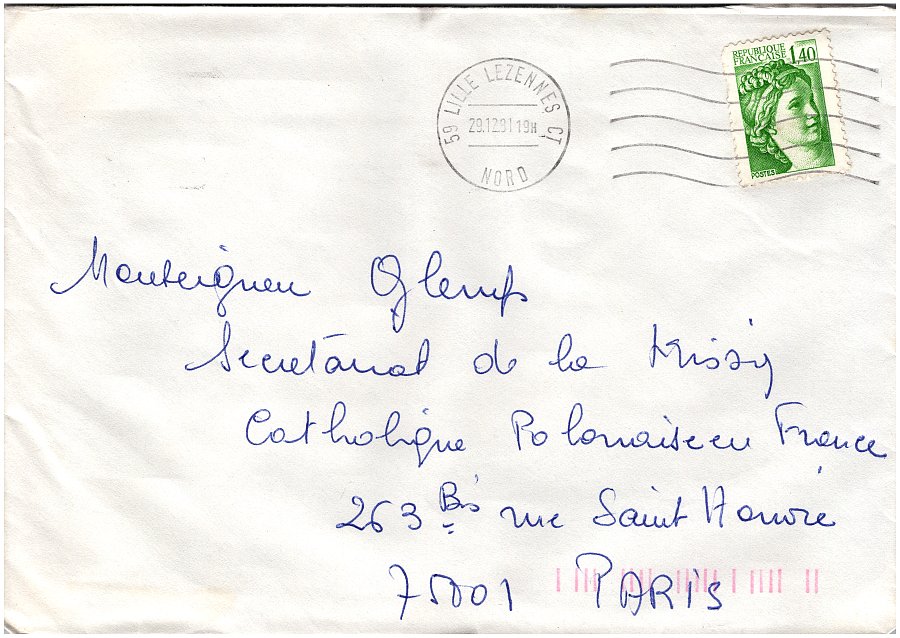 RÉPUBLIQUE
FRANÇAISE 1,40
POSTES
59 LILLE LEZENNES CT
29.12.81 19H
NORD
Monseigneur Glemp
Secretariat de la Missio
Catholique Polonaise en France
263 Bis rue Saint Honoré
75001 PARIS